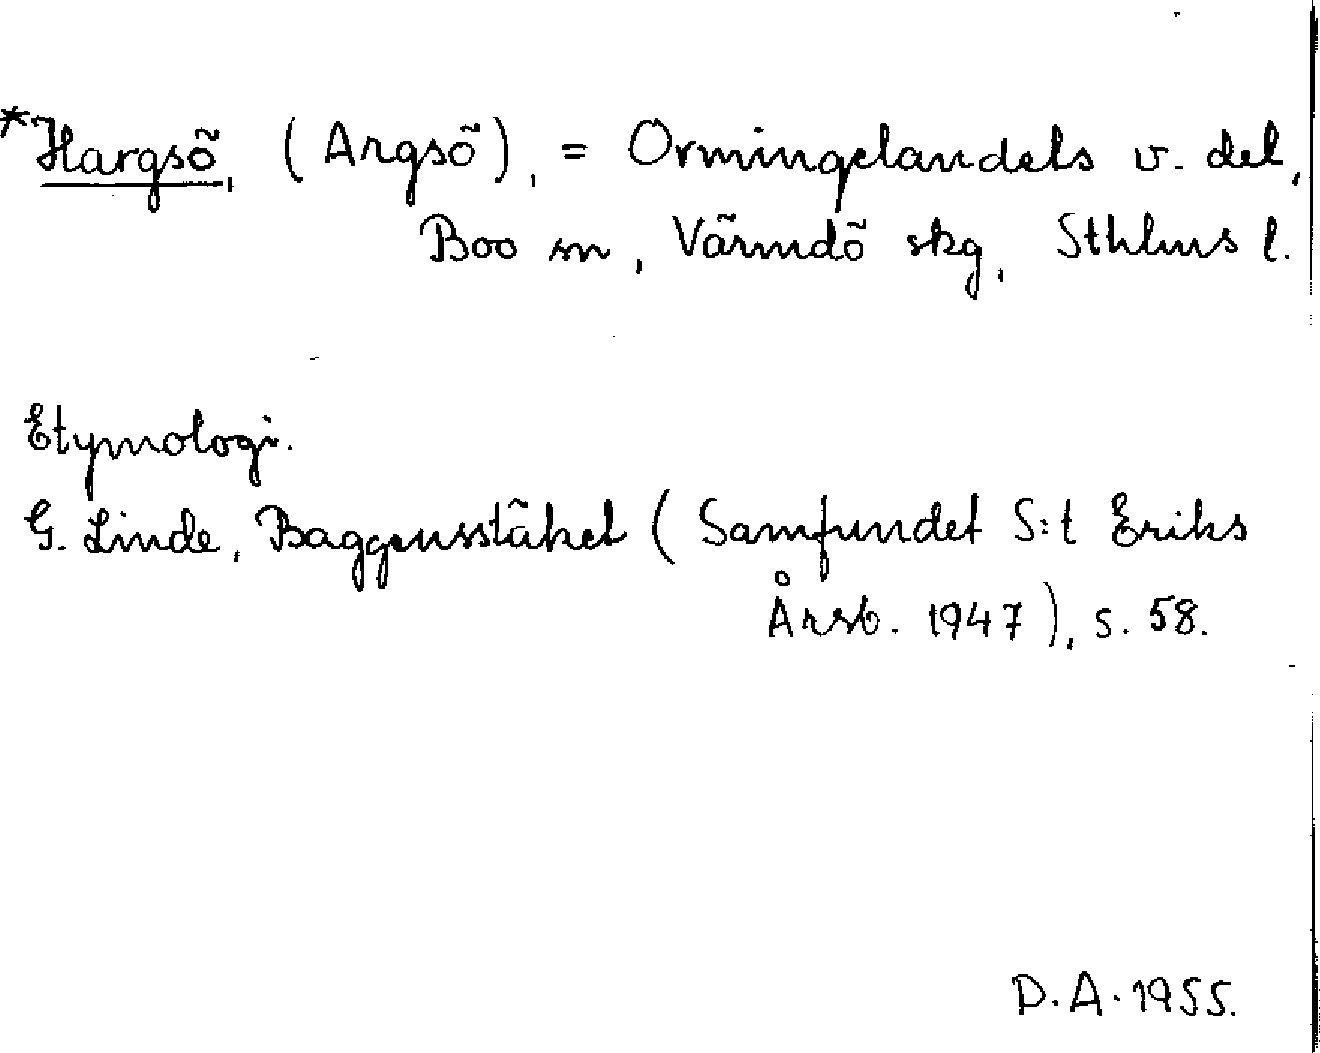 *Hargsö, (Argsö), = Ormingelandets v. del,
Boo sn, Värmdö skg, Sthlms l.
Etymologi.
G. Linde, Baggensstäket (Samfundet S:t Eriks
Årsb. 1947), s. 58.
D.A. 1955.